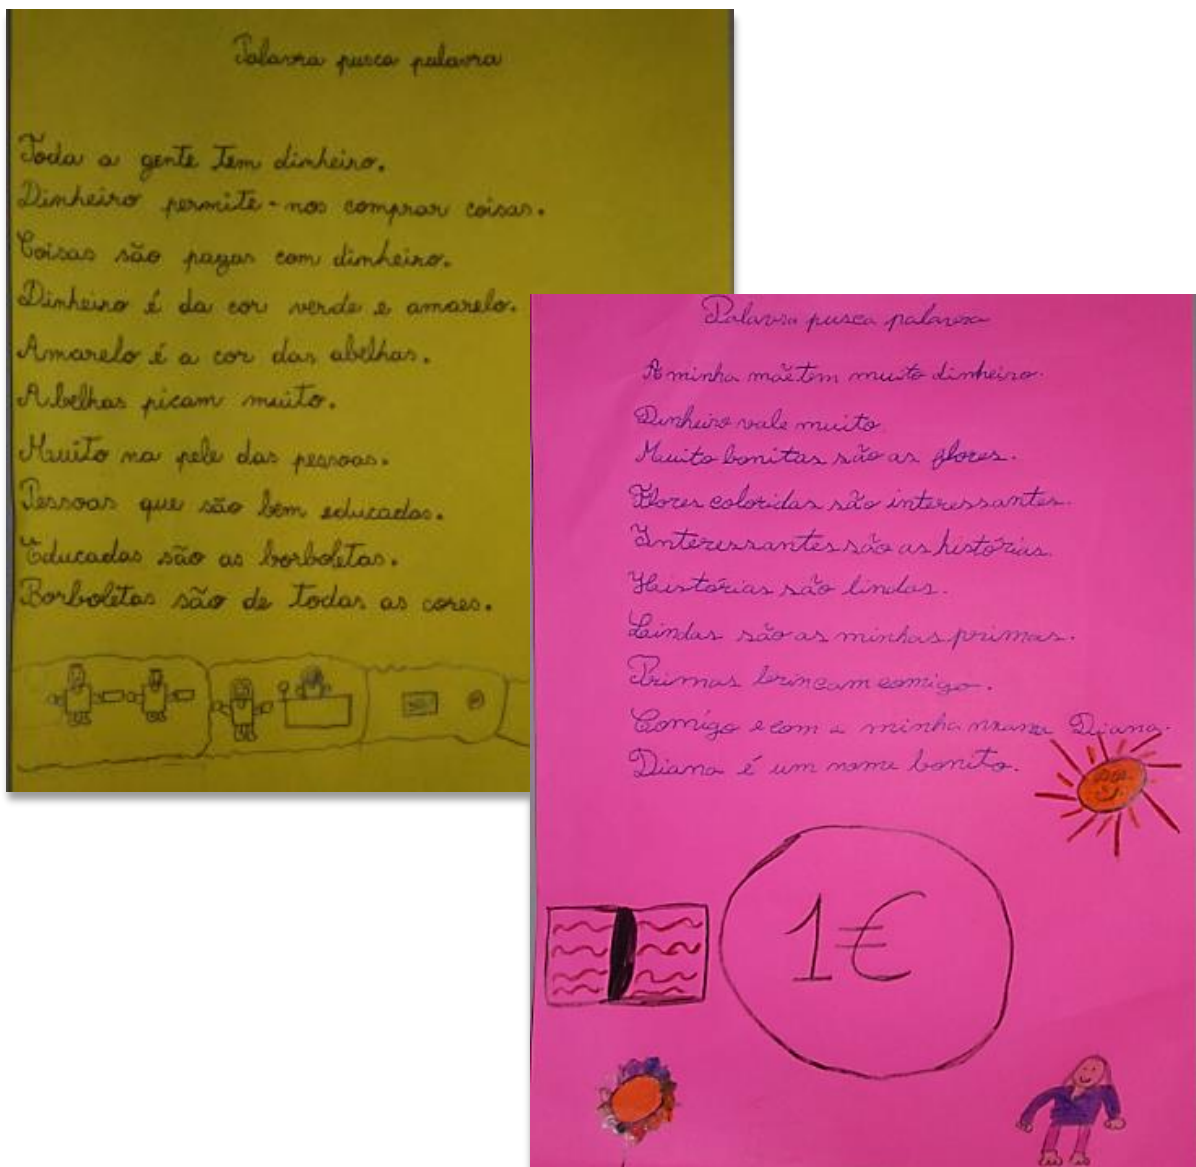 Palavra puxa palavra
Toda a gente tem dinheiro.
Dinheiro permite-nos comprar coisas.
Coisas são pagas com dinheiro.
Dinheiro é da cor verde e amarelo.
Amarelo é a cor das abelhas.
Abelhas picam muito.
Muito na pele das pessoas.
Pessoas que são bem educadas.
Educadas são as borboletas.
Borboletas são de todas as cores.
Palavra puxa palavra
A minha mãe tem muito dinheiro.
Dinheiro vale muito.
Muito bonitas são as flores.
Flores coloridas são interessantes.
Interessantes são as histórias.
Histórias são lindas.
Lindas são as minhas primas.
Primas brincam comigo.
Comigo e com a minha mana Diana.
Diana é um nome bonito.
1€